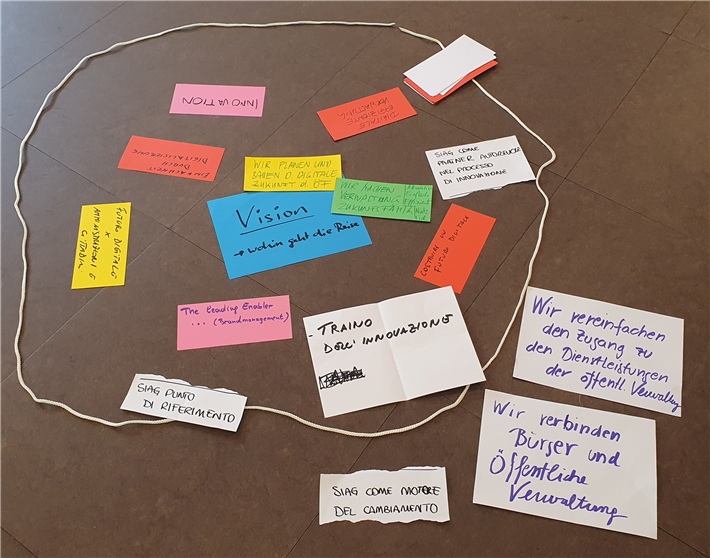 INNOVATION
DIGITALE
EFFIZIENTE
VERWALTUNG
EINFACHHEIT
DURCH
DIGITALISIERUNG
WIR PLANEN UND
BAUEN D. DIGITALE
ZUKUNFT d. ÖF
SIAG COME
PARTNER AUTOREVOLE
NEL PROCESSO
DI INNOVAZIONE
WIR MACHEN
VERWALTUNG
ZUKUNFTSFÄHIG
Vision
→ wohin geht die Reise
FUTURO DIGITALE
X
AMMINISTRATORI E
CITTADINI
COSTRUIRE UN
FUTURO DIGITALE
The Leading Enabler
... (Brandmanagement)
- TRAINO
DELL'INNOVAZIONE
Wir vereinfachen
den Zugang zu
den Dienstleistungen
der öffentl. Verwaltung
SIAG PUNTO
DI RIFERIMENTO
Wir verbinden
Bürger und
Öffentliche
Verwaltung
SIAG COME MOTORE
DEL CAMBIAMENTO